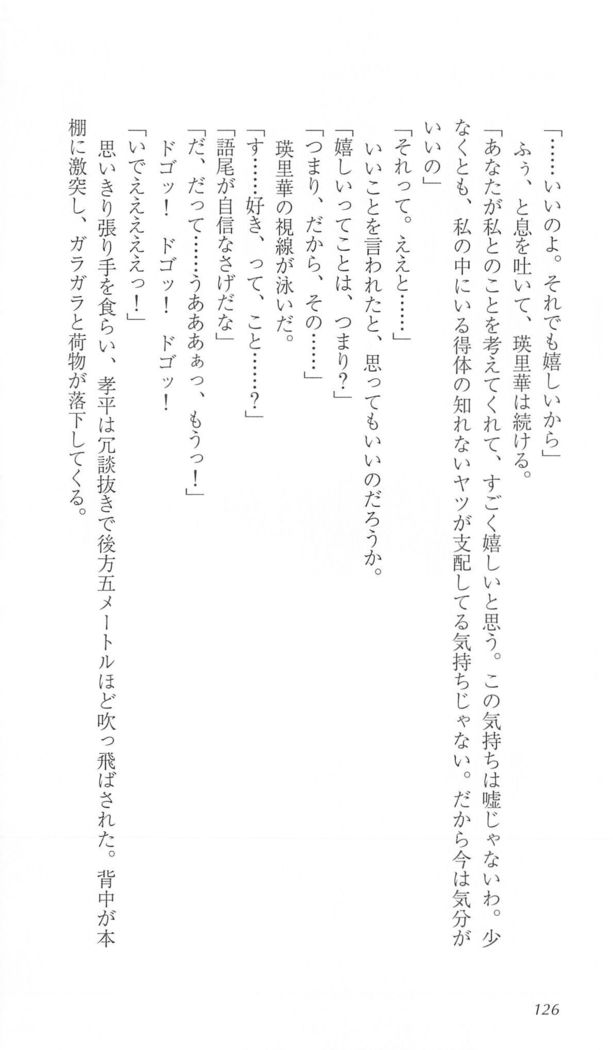 「……いいのよ。それでも嬉しいから」
　ふぅ、と息を吐いて、瑛里華は続ける。
「あなたが私とのことを考えてくれて、すごく嬉しいと思う。この気持ちは嘘じゃないわ。少
なくとも、私の中にいる得体の知れないヤツが支配してる気持ちじゃない。だから今は気分が
いいの」
「それって。ええと……」
　いいことを言われたと、思ってもいいのだろうか。
「嬉しいってことは、つまり？」
「つまり、だから、その……」
　瑛里華の視線が泳いだ。
「す……好き、って、こと……？」
「語尾が自信なさげだな」
「だ、だって……うあああぁっ、もうっ！」
　ドゴッ！　ドゴッ！　ドゴッ！
「いでえええええっ！」
　思いきり張り手を食らい、孝平は冗談抜きで後方五メートルほど吹っ飛ばされた。背中が本
棚に激突し、ガラガラと荷物が落下してくる。
126